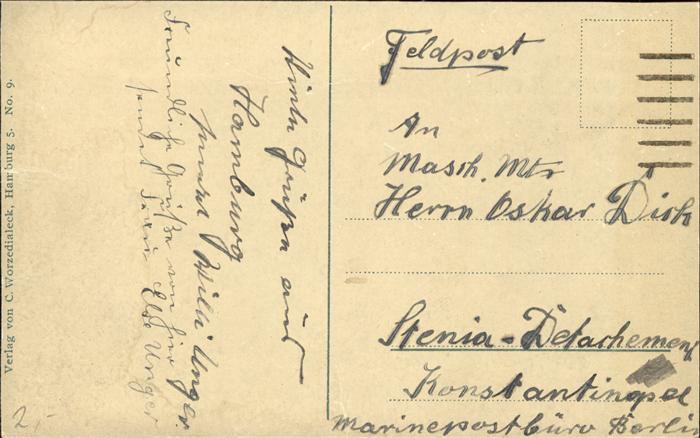 Verlag von C. Worzedialeck, Hamburg 5. No. 9.
Viele Grüße aus
Hamburg
sendet Willi Unger.
Freundliche Grüße von hier
sendet Frau Else Unger
2,-
Feldpost
An
Masch. Mtr
Herrn Oskar Dirk
Stenia-Detachement
Konstantinopel
Marinepostbüro Berlin